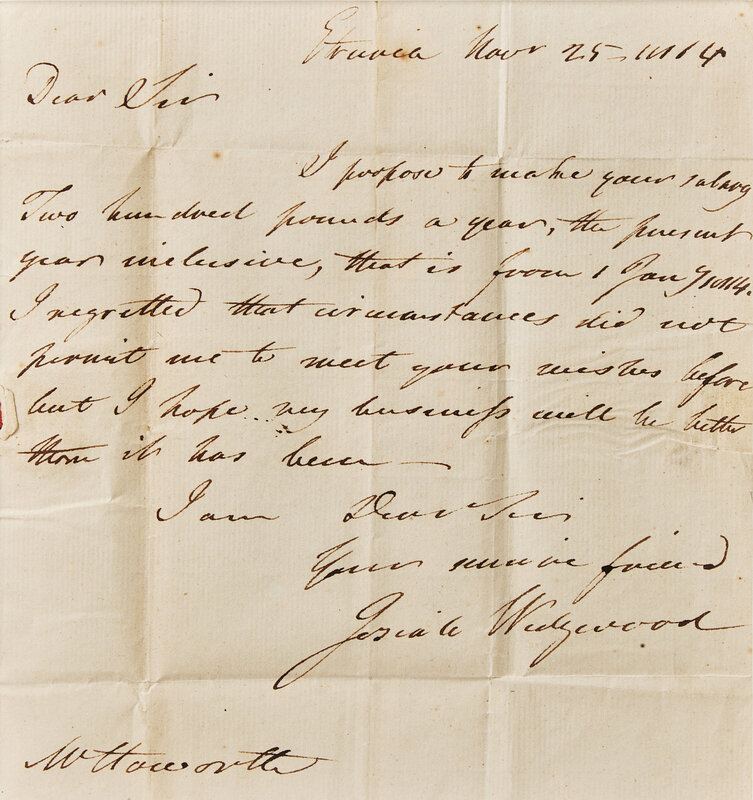 Etruria Novr 25 1814
Dear Sir
I propose to make your salary
Two hundred pounds a year, the present
year inclusive, that is from 1 Jany 1814.
I regretted that circumstances did not
permit me to meet your wishes before
but I hope my business will be better
than it has been
I am Dear Sir
Your sincere friend
Josiah Wedgwood
Mr Howorth